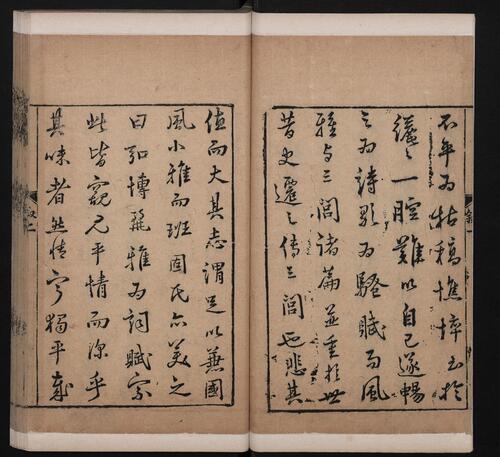 不平為枯稿憔悴至於
纏之一腔難以自已遂暢
之為詩歌為騷賦而風
雅與三閭諸篇並重於世
昔史遷之傳三閭也悲其
值而大其志謂足以兼國
風小雅而班固氏亦美之
曰弘博麗雅為詞賦宗
此皆窺見乎情而深乎
其味者然情寧獨平